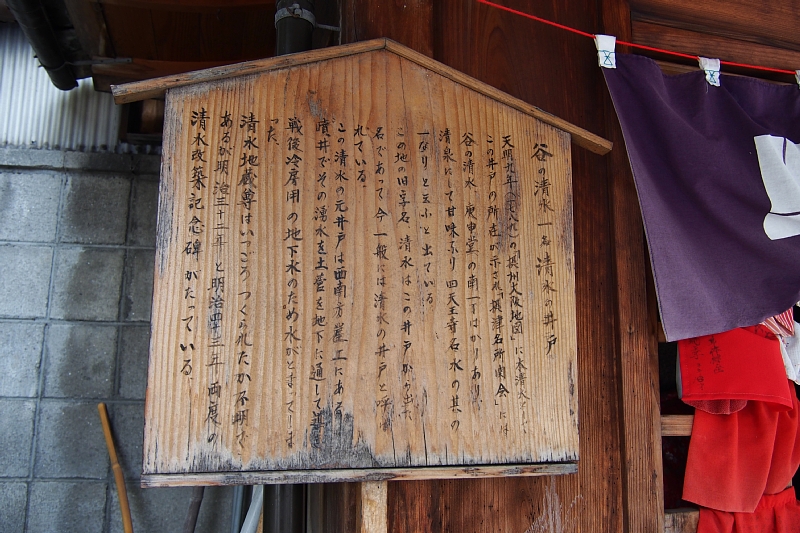 谷の清水 一名 清水の井戸
天明九年の「摂州大阪地図」に本清水
この井戸の所在が示され「摂津名所図会」には
谷の清水 庚申堂の南一丁ばかりあり、
清泉にして甘味なり 四天王寺名水の其の
一なりと云ふと出ている
この地の旧字名、清水はこの井戸から出た
名であって今一般には清水の井戸と呼ば
れている。
この清水の元井戸は西南方崖上にある
噴井でその湧水を土管を地下に通して
戦後冷房用の地下水のため水がとまってしま
った。
清水地蔵尊はいつごろつくられたか不明で
あるが明治三十二年 と明治四十三年 両度の
清水改築記念碑がたっている。